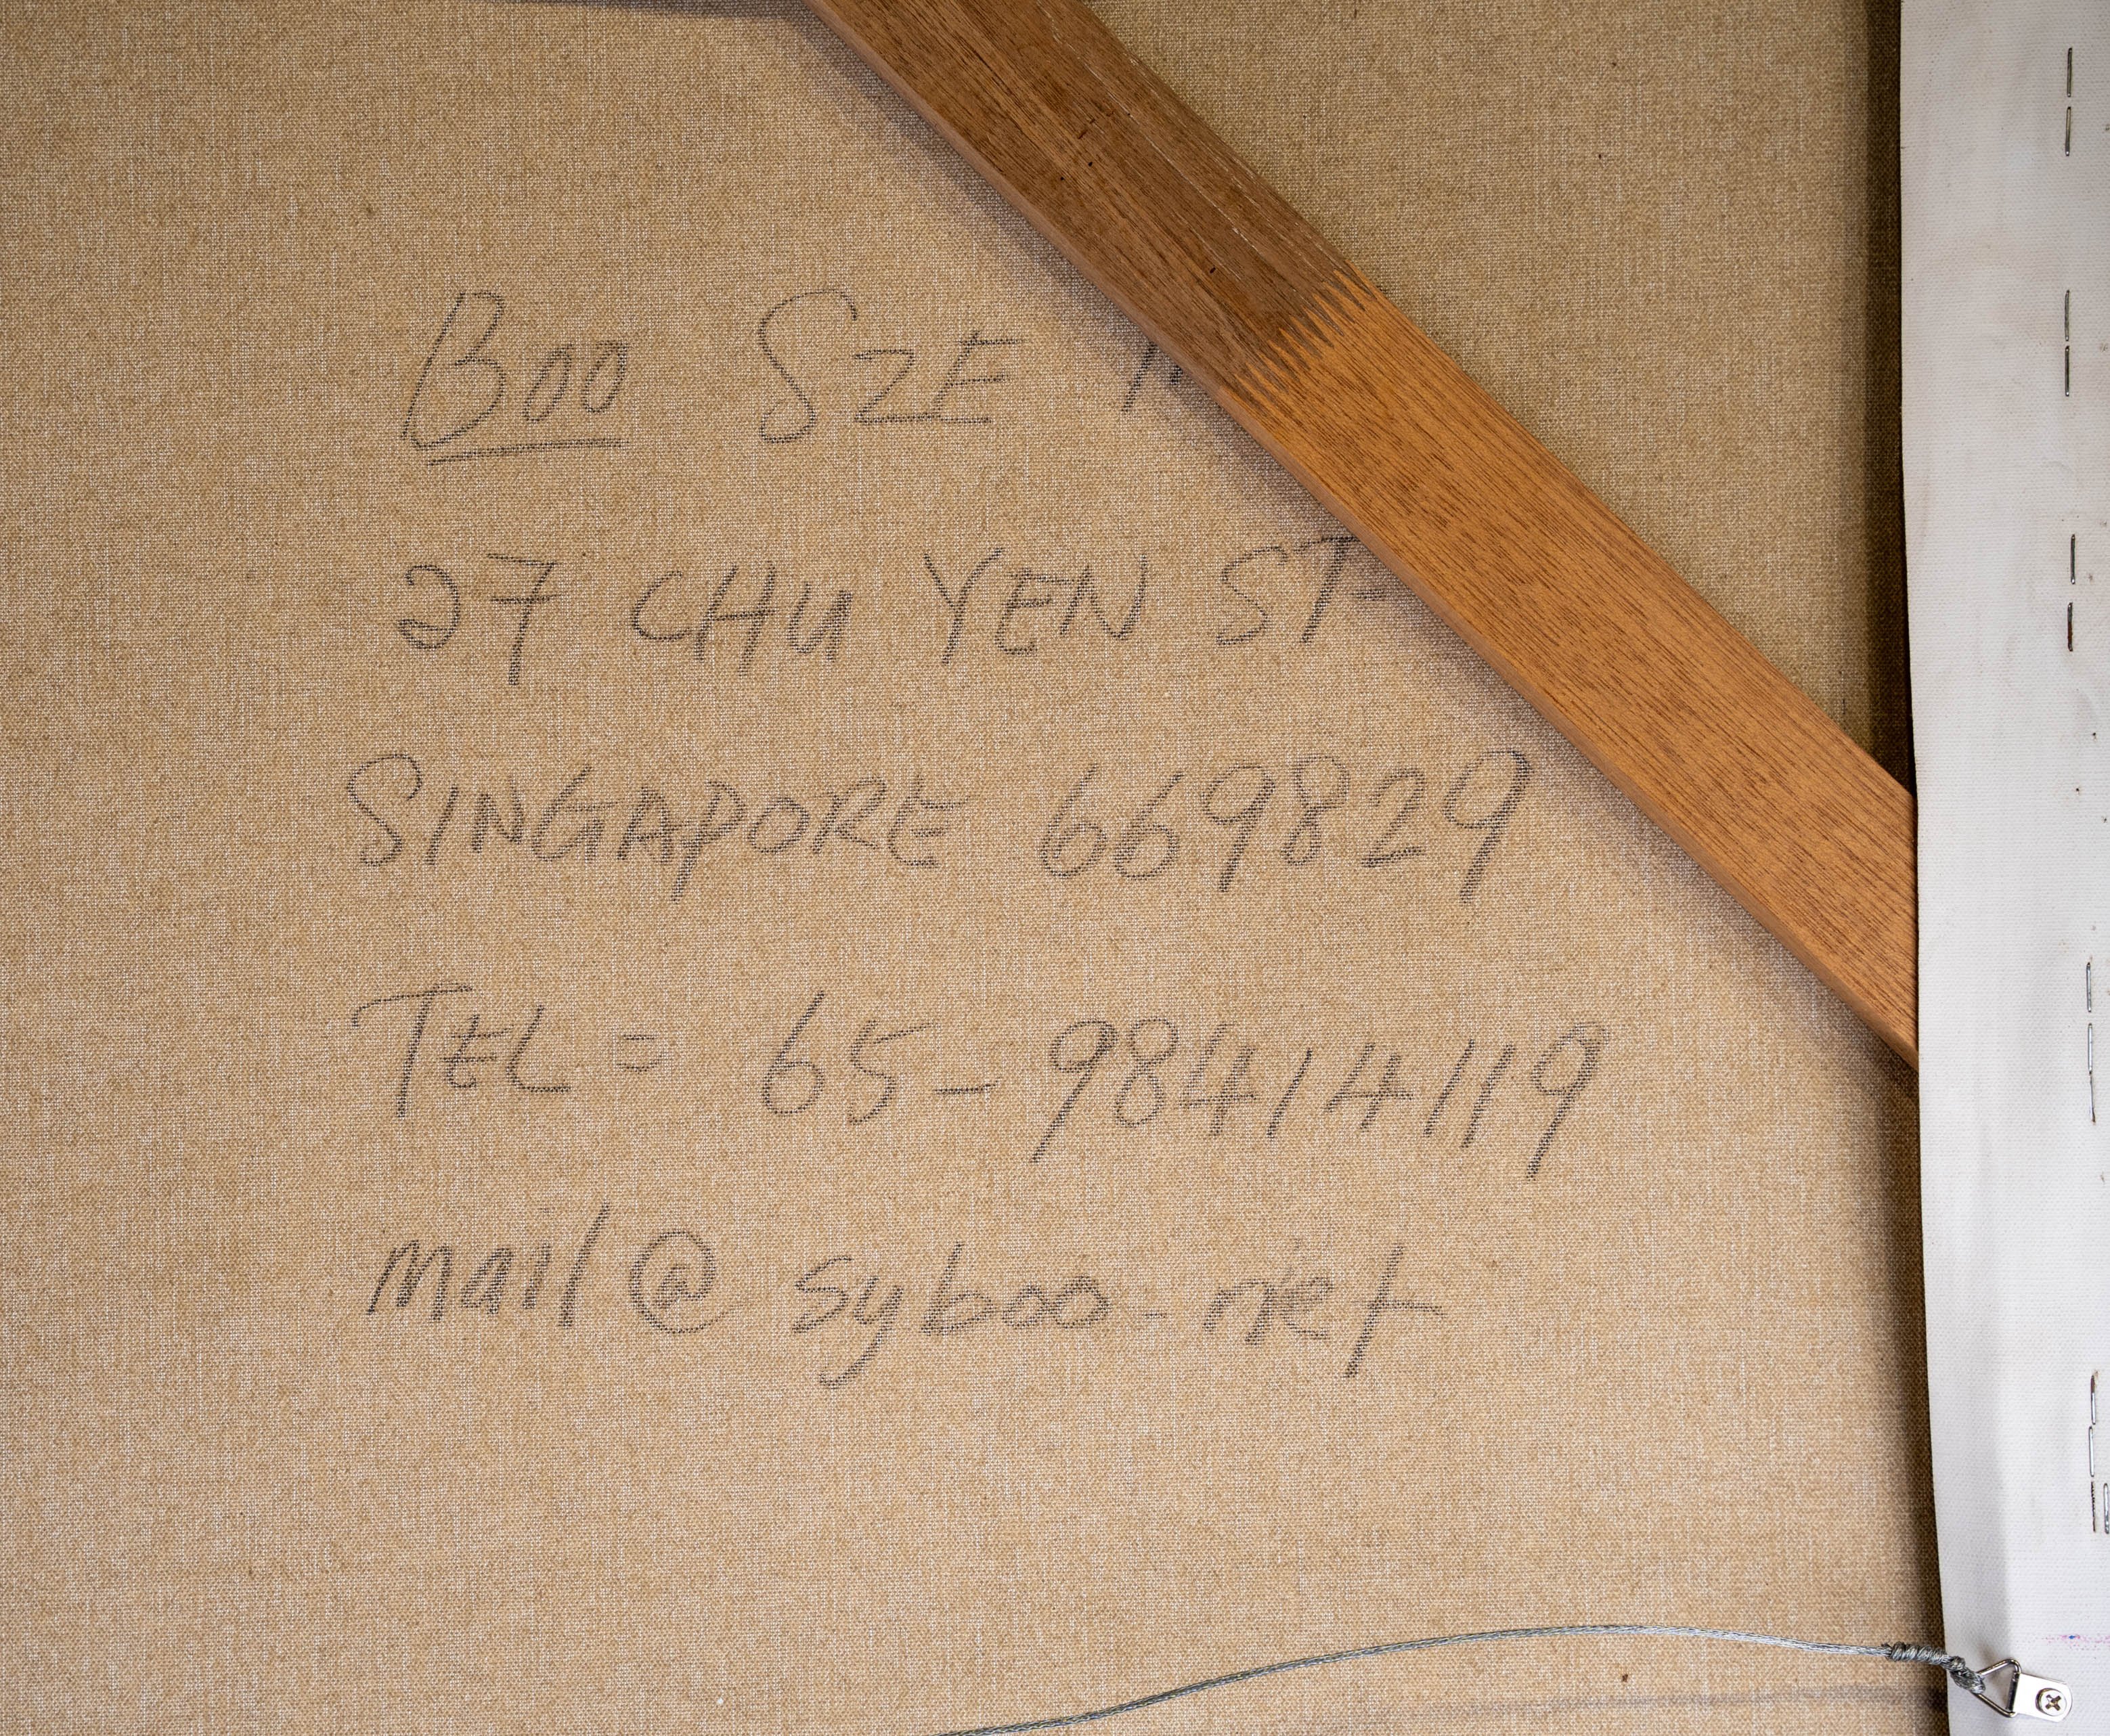 Boo SZE
27 CHU YEN ST-
SINGAPORE 669829
TEL = 65-98414119
mail@syboo.net